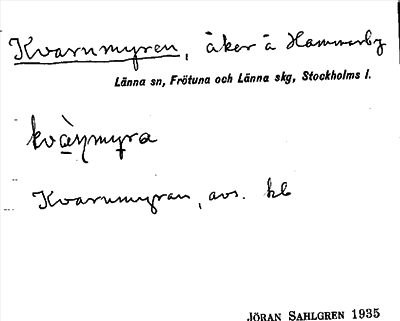 Kvarnmyren, åker å Hammarby
Länna sn, Frötuna och Länna skg, Stockholms l.
kvàɳmyra
Kvarnmyran, avs. kl
JÖRAN SAHLGREN 1935